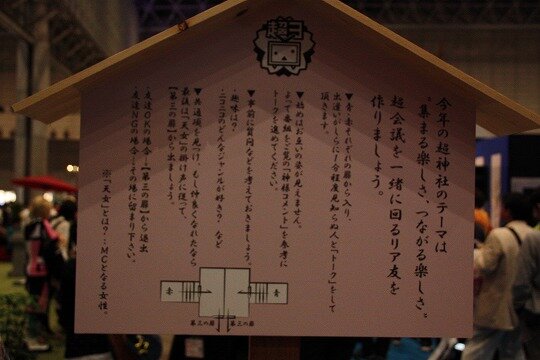 超
今年の超神社のテーマは
“集まる楽しさ、つながる楽しさ。”
超会議を一緒に回るリア友を
作りましょう。
▼青・赤それぞれの扉から入り、
出逢いがしらに1分程度見知らぬ人と「トーク」をして
頂きます。
▼始めはお互いの姿が見えません。
よって番組をご覧の「神様コメント」を参考に
トークを進めてください。
▼事前に質問などを考えておきましょう。
・趣味は？
・ニコニコのどんなジャンルが好き？ など
▼共通項を見つけ、もし仲良くなれたなら
最後は「天女」の掛け声に従って、
【第三の扉】から出ましょう。
・友達OKの場合…【第三の扉】から退出
・友達NGの場合…その場に留まり下さい。
※「天女」とは？…MCとなる女性。
赤
青
第三の扉
第三の扉